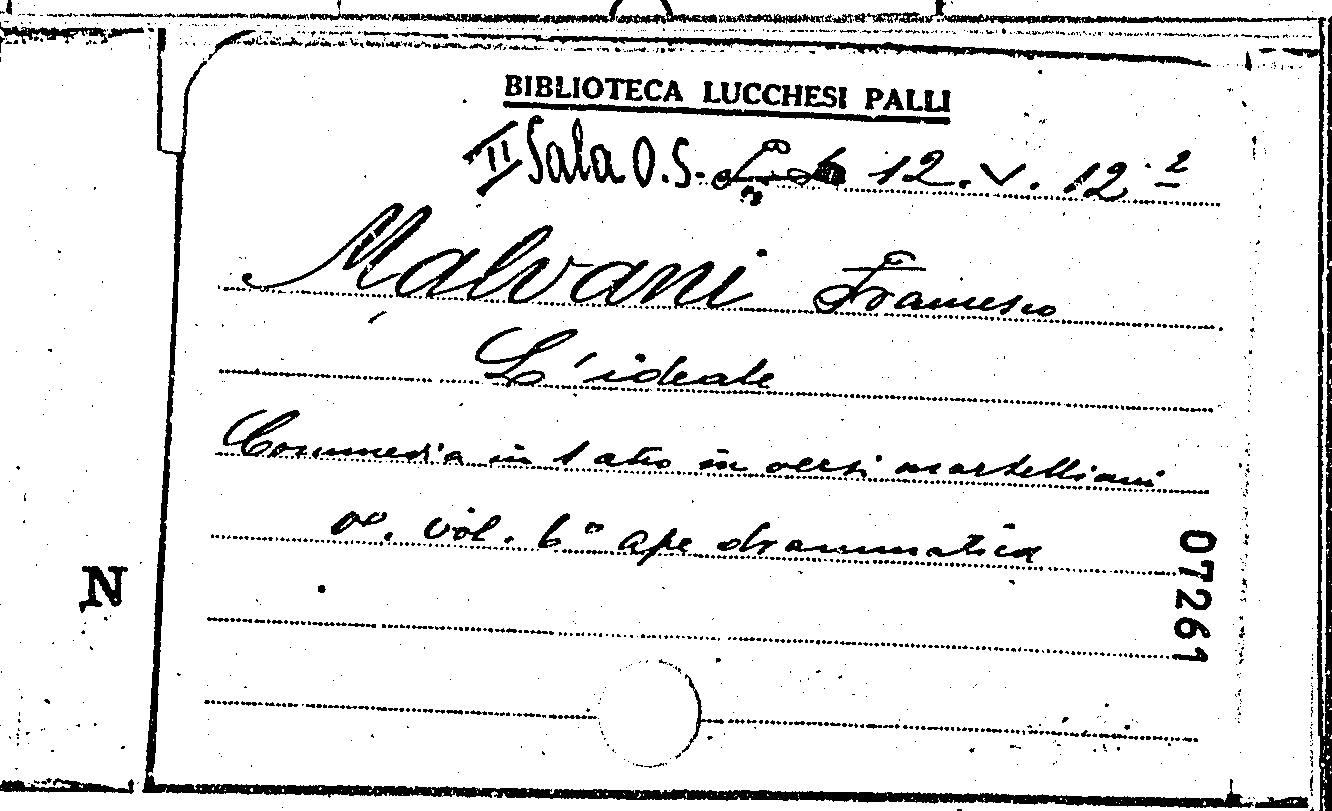 BIBLIOTECA LUCCHESI PALLI
II Sala O.S. 12. V. 12 2
Malvani Francesco
L'ideale
Commedia in 1 atto in versi martelliani
v. vol. 6° ape drammatica
07261
N